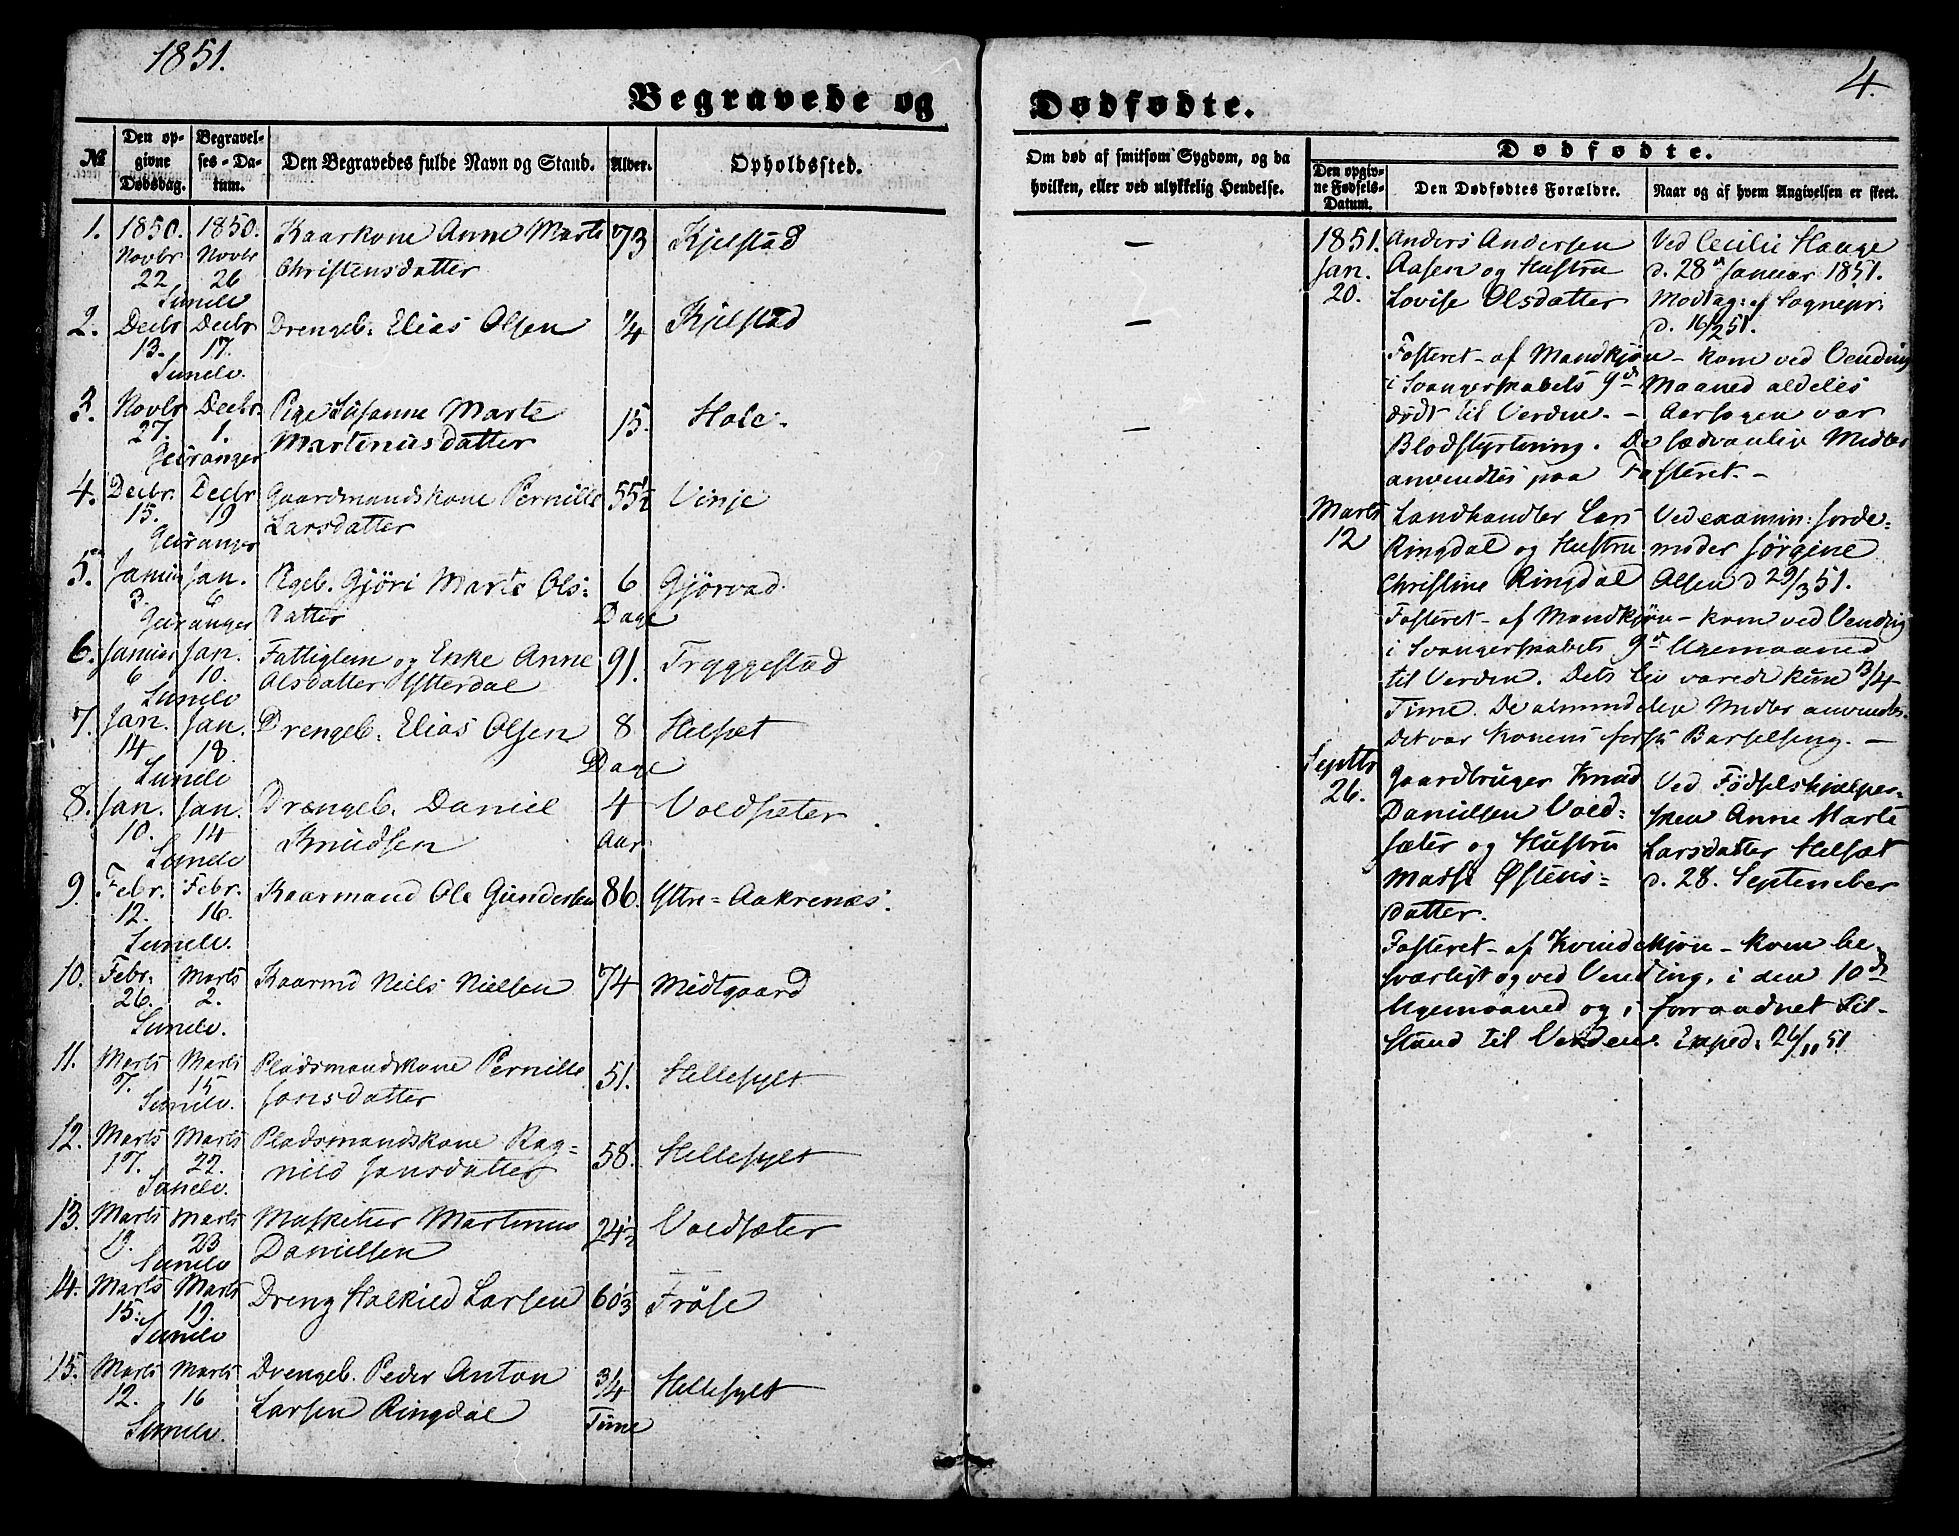 1851.
4.
Begravede og
Dødfødte.
№
Den opgivne Dødsdag.
Begravelses-Datum.
Den Begravedes fulde Navn og Stand.
Alder.
Opholdssted.
Om død af smitsom Sygdom, og da
hvilken, eller ved ulykkelig Hendelse.
Dødfødte.
Den opgivne Fødsels-Datum.
Den Dødfødtes Forældre.
Naar og af hvem Angivelsen er skeet.
1. 1850. 1850. Kaarkone Anne Marte 73 Kjelstad —
Novbr Novbr Christensdatter
22 26
Sunelv
2. Decbr Decbr Drengeb. Elias Olsen 1/4 Kjelstad —
13. 17.
Sunelv.
3. Novbr Decbr. Pige Susanne Marte 15. Hole. —
27. 1. Martinusdatter
Geiranger
4. Decbr. Decbr Gaardmandskone Pernille 55½ Vinje
15. 19 Larsdatter
Geiranger
5. Januar Jan. Pigeb. Gjøri Marte Ols: 6 Gjørvad
3. 6 datter Dage
Geiranger
6. Januar Jan. Fattiglem og Enke Anne 91. Tryggestad
6 10. Olsdatter Ytterdal
Sunelv
7. Jan. Jan. Drengeb. Elias Olsen 8 Helsæt
14 18. Dage
Sunelv
8. Jan. Jan. Drængeb. Daniel 4 Voldsæter
10. 14 Knudsen Aar
Sunelv
9. Febr. Febr. Kaarmand Ole Gundersen 86. Yttre=Aakrenæs.
12. 16.
Sunelv.
10. Febr. Marts Kaarmd Niels Nielsen 74 Midtgaard
26. 2.
Sunelv.
11. Marts Marts Pladsmandskone Pernille 51. Hellesylt
7. 15 Jonsdatter
Sunelv.
12. Marts Marts Pladsmandskone Rag= 58. Hellesylt
17. 22. nild Jonsdatter
Sunelv.
13. Marts Marts Musketier Martinus 24½ Voldsæter
23 Danielsen
Sunelv
14. Marts Marts Dreng Halkied Larsen 60⅓ Frøse
15. 19.
Sunelv
15. Marts Marts Drengeb. Peder Anton 3/4 Hellesylt
12. 16 Larsen Ringdal Time
Sunelv.
1851. Anders Andersen Ved Cecilie Hauge
Jan. Aasen og Hustru d. 28de Januar 1851.
20. Lovise Olsdatter Modtag: af Sognepr.
d. 16/2 51.
Fosteret - af Mandkjøn - kom ved Vending
i Svangerskabets 9de Maaned aldeles
dødt til Verden. - Aarsagen var
Blodstyrtning. De sædvanlige Midler
anvendtes paa Fosteret. -
Marts Landhandler Lars Ved examin: Jorde=
12 Ringdal og Hustru moder Jørgine
Christine Ringdal Olsen d 29/3 51.
Fosteret - af Mandkjøn - kom ved Vending
i Svangerskabets 9de Ugemaaned
til Verden. Dets Liv varede kun 3/4
Time. De almindelige Midler anvendtes.
Det var Konens første Barselseng. —
Septbr Gaardbruger Knud Ved Fødselshjælper=
26. Danielsen Vold= sken Anne Marte
sæter og Hustru Larsdatter Helsæt
Massi Østens= d. 28. September
datter.
Fosteret - af Kvindekjøn - kom be=
sværligt og ved Vending, i den 10de
Ugemaaned og i forraadnet Til=
stand til Verden. Exped. 26/11 51